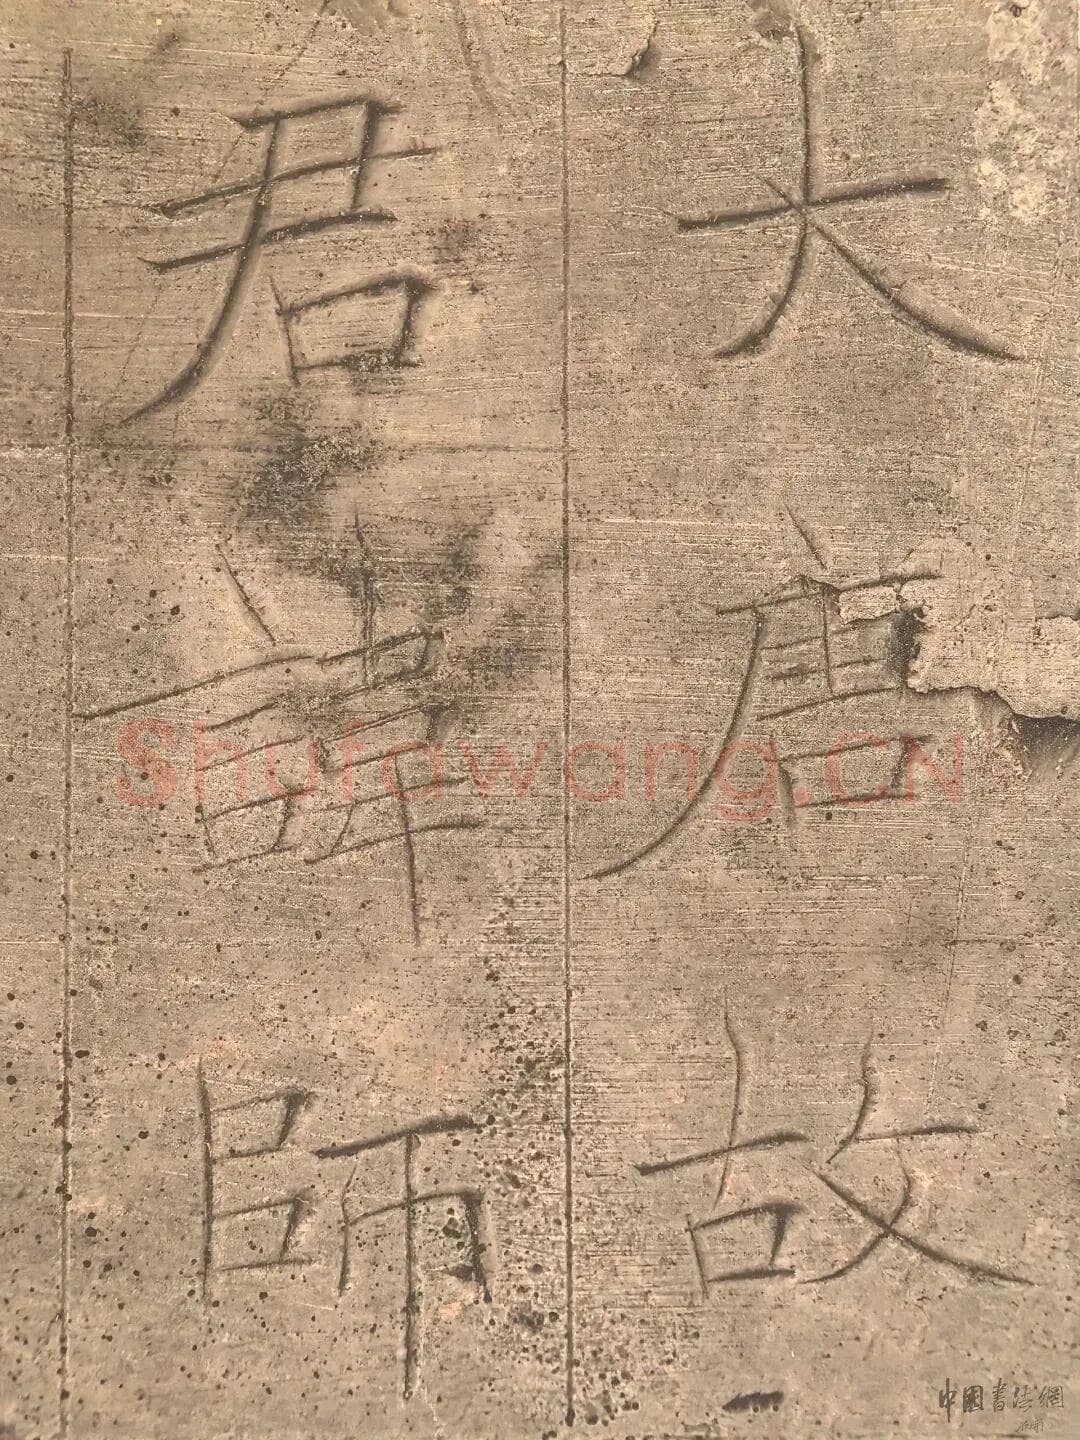 大唐故
君諱師
Shufawang.CN
中國書法網